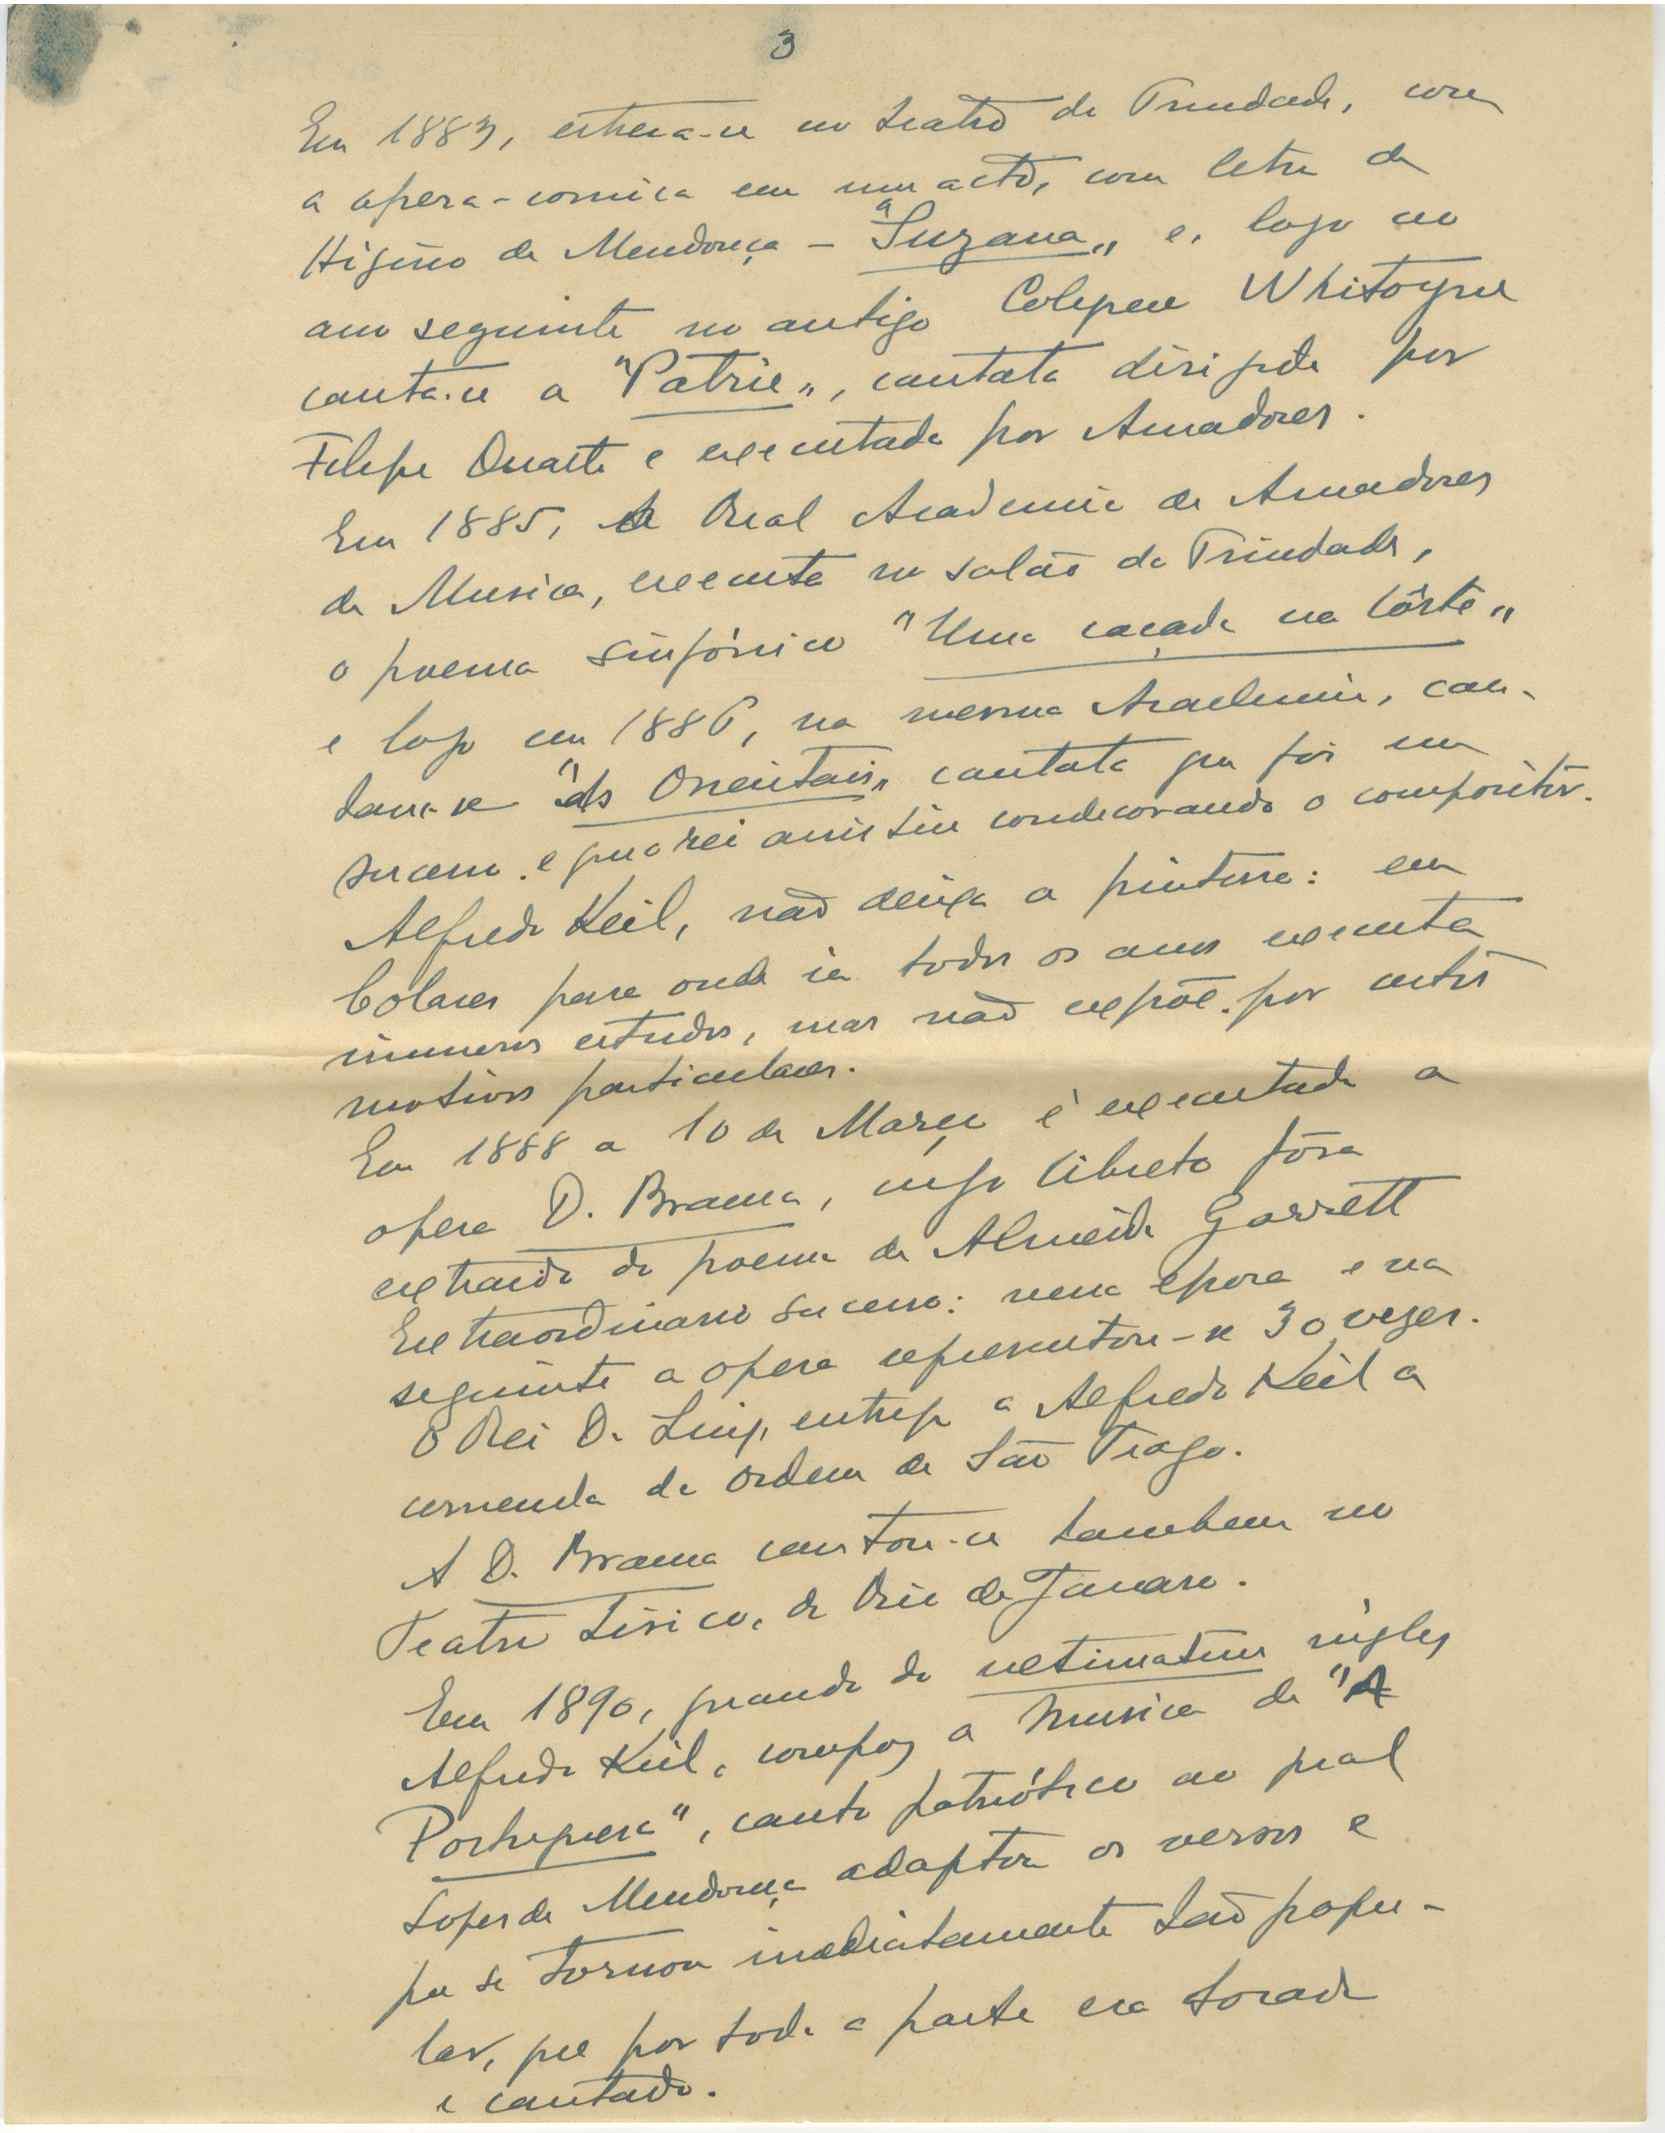 3
Em 1883, estreia-se no teatro da Trindade, com
a opera-comica em um acto, com letra de
Higino de Mendonça – "Suzana„ e, logo no
ano seguinte no antigo Colyseu Whitoyne
canta-se a "Patrie„, cantata dirigida por
Filipe Duarte e executada por Amadores.
Em 1885, a Real Academia de Amadores
de Musica, executa no salão da Trindade,
o poema sinfónico "Uma caçada na Côrte„
e logo em 1886, na mesma Academia, can-
tam-se "As Orientais„ cantata que foi um
sucesso e que o rei assistiu condecorando o compositor.
Alfredo Keil, não deixa a pintura: em
Colares para onde ia todos os anos executa
inumeros estudos, mas não expõe por certos
motivos particulares.
Em 1888 a 10 de Março é executada a
opera D. Branca, cujo libreto fôra
extraido do poema de Almeida Garrett
Extraordinario sucesso: nessa epoca e na
seguinte a opera representou-se 30 vezes.
O Rei D. Luiz, entrega a Alfredo Keil a
comenda da ordem de São Tiago.
A D. Branca cantou-se tambem no
Teatro Lirico, do Rio de Janeiro.
Em 1890, quando do ultimatum inglez
Alfredo Keil, compoz a musica da "A
Portuguesa", canto patriótico ao qual
Lopes de Mendonça adaptou os versos e
que se tornou imediatamente tão popu-
lar, que por toda a parte era tocado
e cantado.